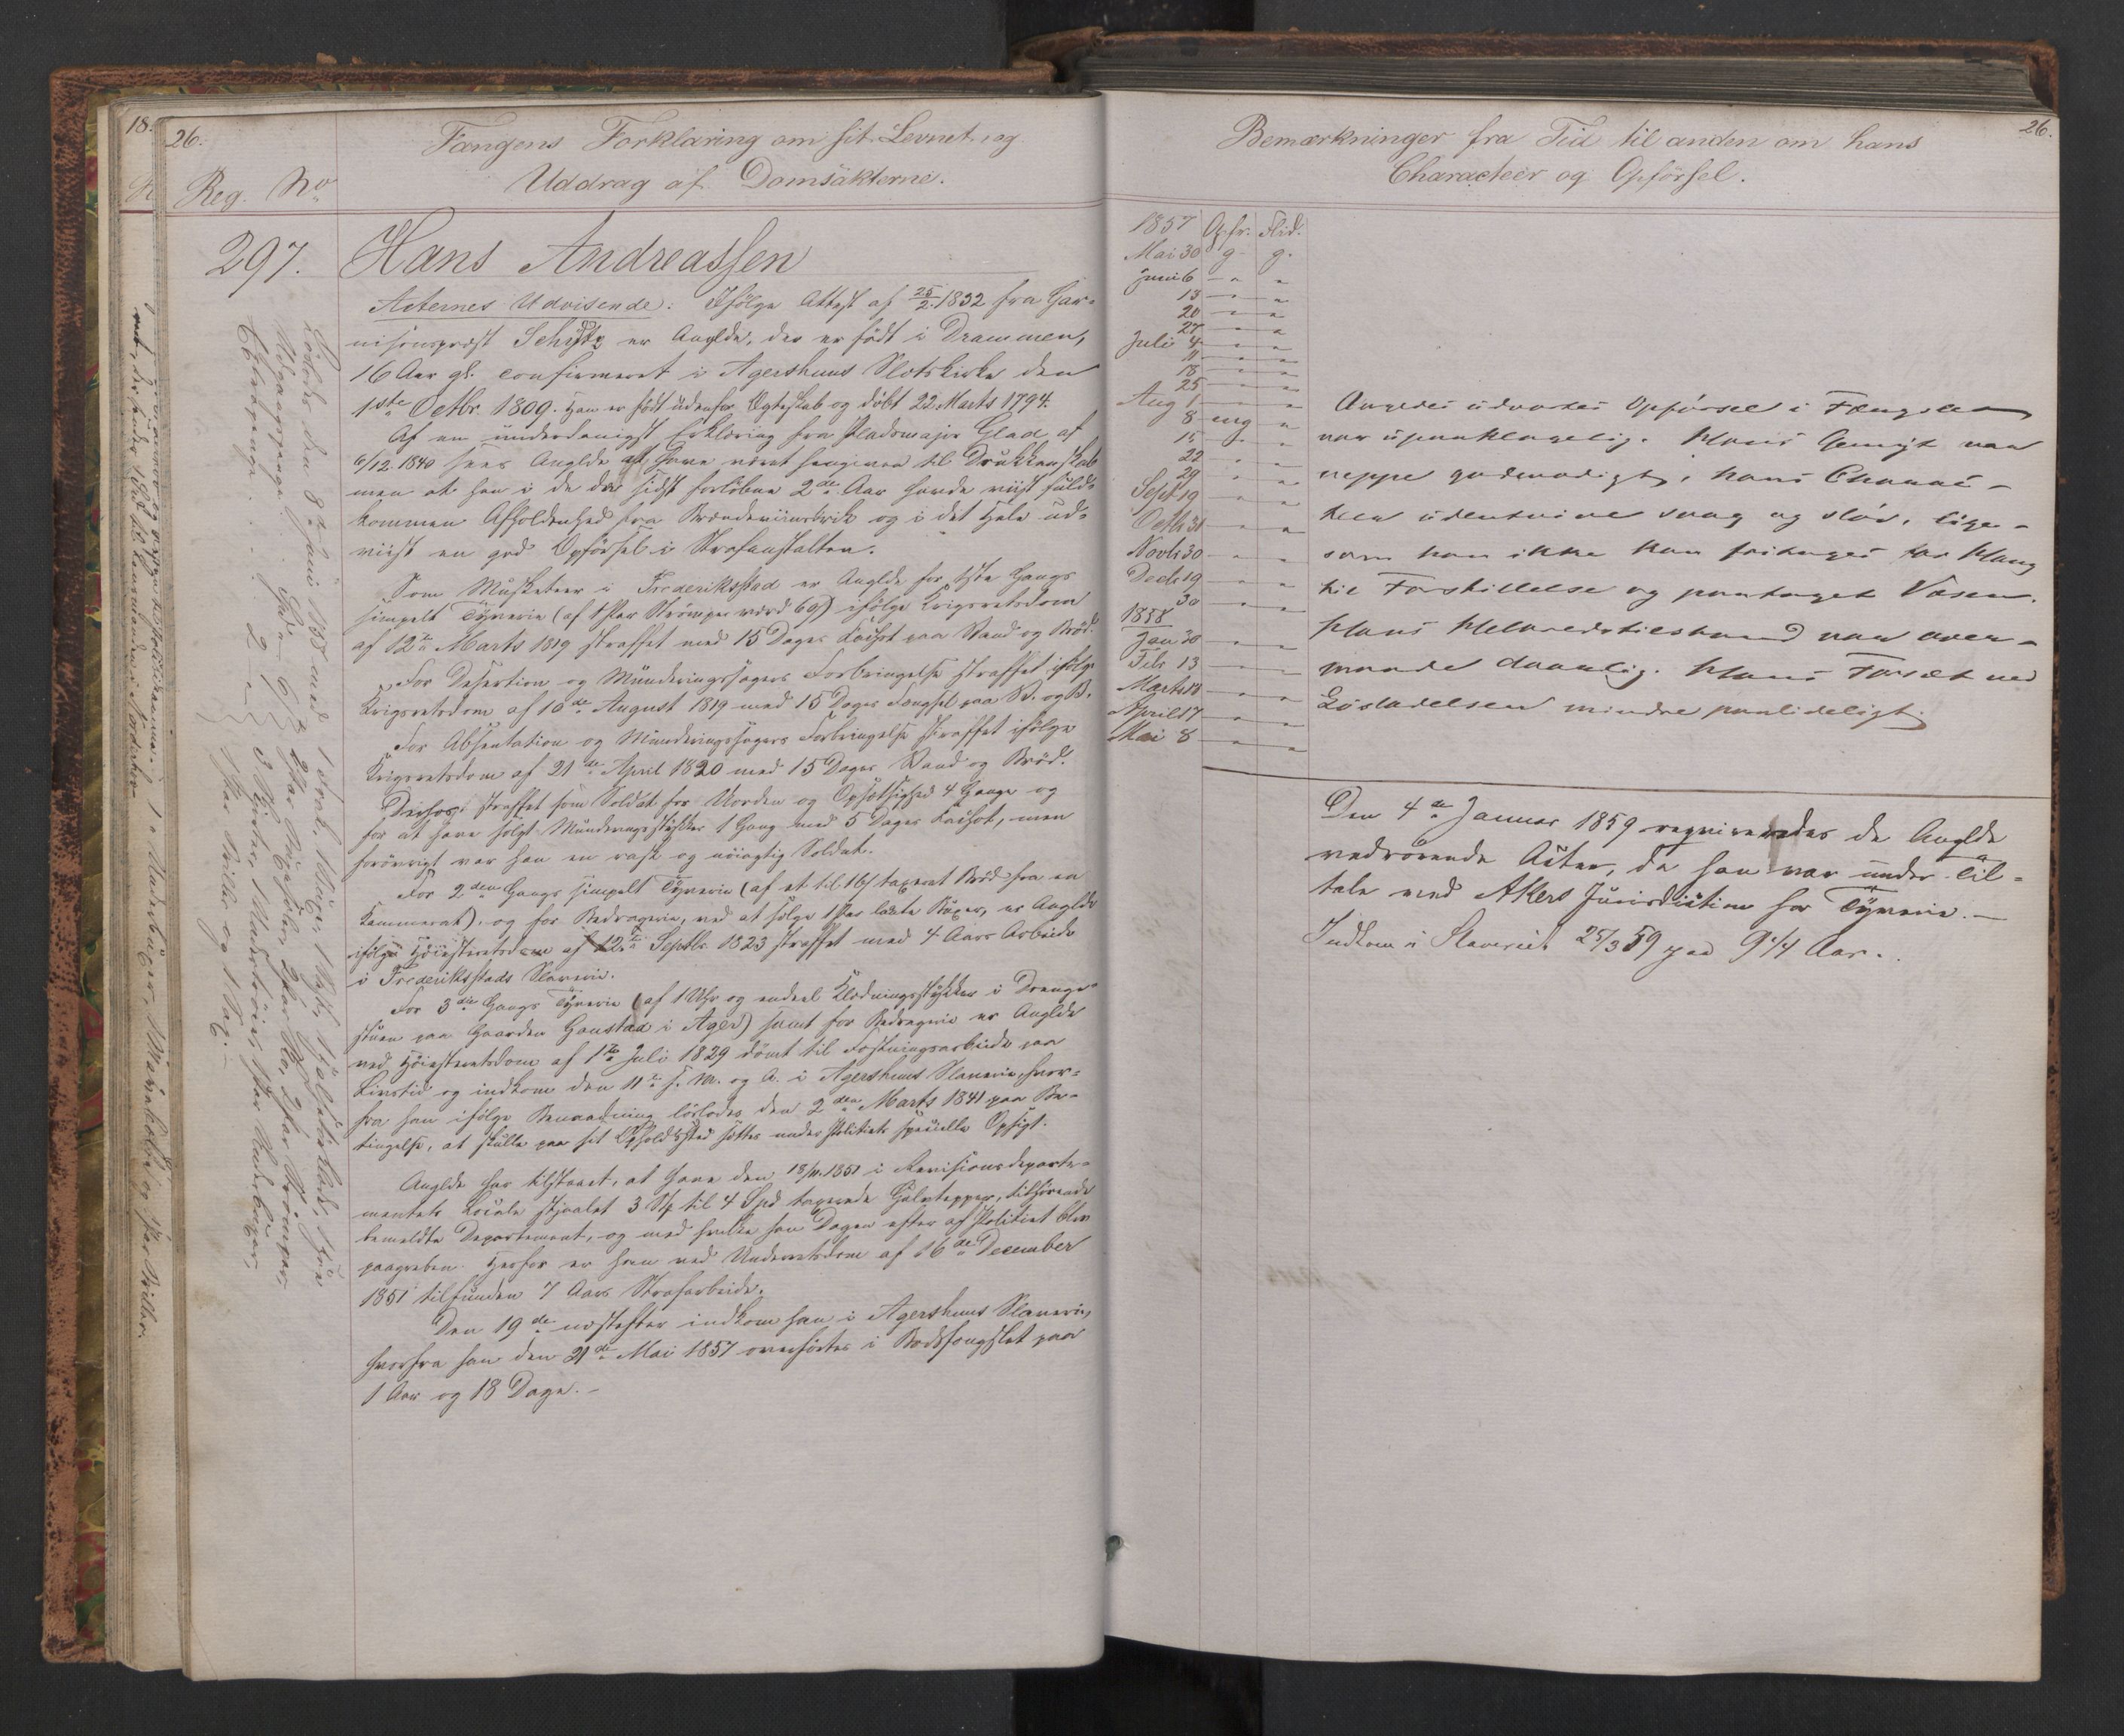 26.
Reg. No
Fangens Forklaring om sit Levnet, og
Uddrag af Domsäkterne.
297.
Hans Andreassen
Acternes Udvisende: Ifølge Attest af 25/2 1832 fra Gar-
nisonspræst Schytz er Anglde, der er født i Drammen,
16 Aar gl. confirmeret i Agershuus Slotskirke den
1ste Octbr. 1809. Han er født udenfor Ægteskab og døbt 22 Marts 1794.
Af en underdanigst Erklæring fra Pladsmajor Glad af
6/12 1840 sees Anglde at have været hengiven til Drukkenskab
men at han i de da sidst forløbne 2de Aar havde viist fuld-
kommen Afholdenhed fra Brændeviinsdrik og i det Hele ud-
viist en god Opførsel i Strafanstalten.
Som Musketeer i Frederiksstad er Anglde for 1ste Gangs
simpelt Tyverie (af 1 Par Strømper værd 60 ß) ifølge Krigsretsdom
af 12te Marts 1819 straffet med 15 Dages Fængsel paa Vand og Brød.
For Desertion og Munderingssagers Forbringelse straffet ifølge
Krigsretsdom af 10de August 1819 med 15 Dages Fængsel paa V. og B.
For Absentation og Munderingssagers Forbringelse straffet ifølge
Krigsretsdom af 21de April 1820 med 15 Dages Vand og Brød.
Derhos straffet som Soldat for Uorden og Opsætsighed 4 Gange og
for at have solgt Munderingsstykker 1 Gang med 5 Dages Fængsel, men
forøvrigt var han en rask og nøiagtig Soldat.
For 2den Gangs simpelt Tyverie (af et til 16 ß taxeret Brød fra en
Kammerat), og for Bedragerie, ved at sælge 1 Par laante Buxer, er Anglde
ifølge Høiesteretsdom af 12te Septbr. 1823 straffet med 4 Aars Arbeide
i Frederiksstads Slaverie.
For 3die Gangs Tyverie (af 1 Uhr og endeel Klædningsstykker i Drenge-
stuen paa Gaarden Gaustad i Ager) samt for Bedragerie er Anglde
ved Høiesteretsdom af 1te Juli 1829 dømt til Fæstningsarbeide paa
Livstid og indkom den 11te s. M. og A. i Agershuus Slaverie, hvor-
fra han ifølge Benaadning løslodes den 2den Marts 1841 paa Be-
tingelse, at skulle paa sit Opholdssted sættes under Politiets specielle Opsigt.
Anglde har tilstaaet, at have den 18/11 1851 i Revisionsdeparte-
mentets Locale stjaalet 3 Stk til 4 Spd taxerede Gulvtepper, tilhørende
bemeldte Departement, og med hvilke han Dagen efter af Politiet blev
paagreben. Herfor er han ved Underretsdom af 16de December
1851 tilfunden 7 Aars Strafarbeide.
Den 19de næstefter indkom han i Agershuus Slaverie,
hvorfra han den 21de Mai 1857 overførtes i Bodsfængslet paa
1 Aar og 18 Dage.
Løslodes den 8de Juni 1858 med
Bemærkninger fra Tid til anden om hans
Characteer og Opførsel.
26.
1857 Opfr. Flid.
Mai 30 g. g.
Juni 6 - " "
13 - " "
20 - " "
27 - " "
Juli 4 - " "
11 - " "
18 - " "
25 - " "
Aug 1 - " "
8 mg "
15 " "
22 " "
29 " "
Sept 19 " "
Octb 31 " "
Novb 30 " "
Decb 19 " "
30 " "
1858
Jan 30 " "
Feb 13 " "
Marts 13 " "
April 17 " "
Mai 8 " "
Angldes udvortes Opførsel i Fængslet
var upaaklagelig. Hans Gemyt var
neppe godmodigt, hans Charac-
teer udentvivl svag og sløv, lige-
som han ikke kan fritages for Hang
til Forstillelse og paataget Væsen.
Hans Helbredstilstand var over-
maade daarlig. Hans Forsæt ved
Løsladelsen mindre paalideligt.
Den 4de Januar 1859 requireredes de Anglde
vedrørende Acter, da han var under Til-
tale ved Akers Jurisdiction for Tyverie.
Indkom i Slaveriet 25/3 59 paa 9 1/4 Aar.